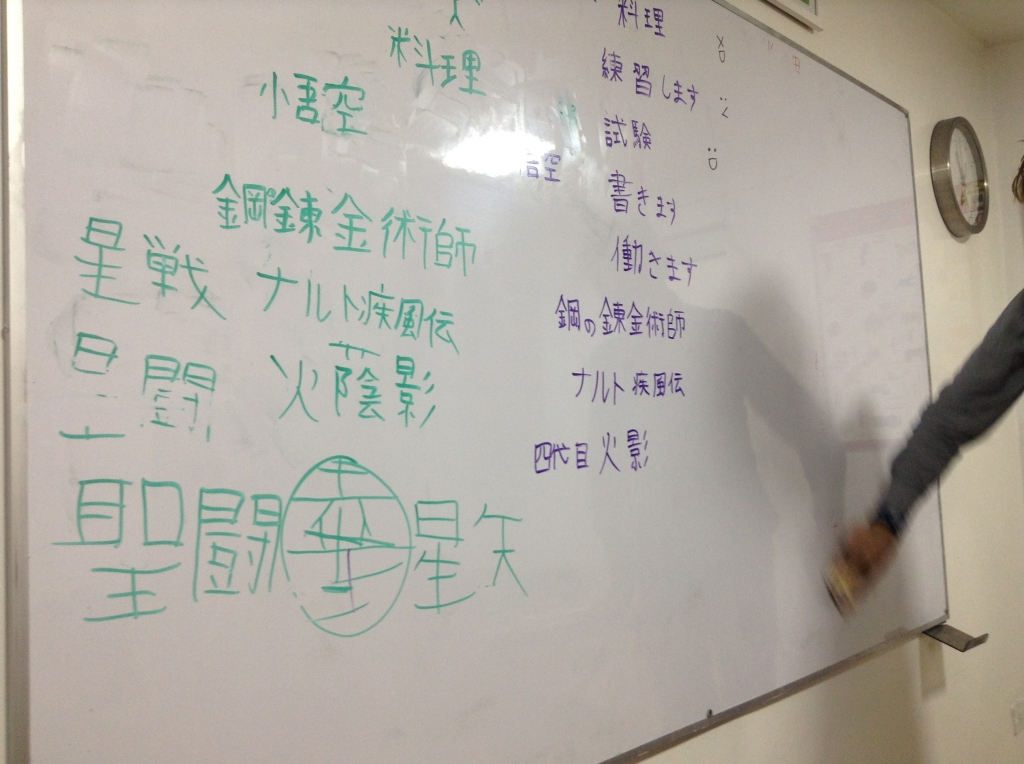 料理
小悟空
鋼錬金術師
星戦
ナルト疾風伝
闘
火蔭影
聖闘
星矢
料理
練習します
試験
悟空
書きます
働きます
鋼の錬金術師
ナルト疾風伝
四代目火影